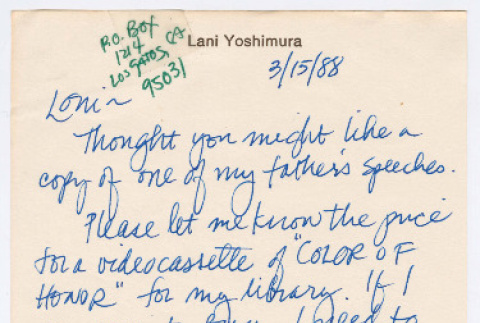 P.O. BOX
1214
LOS GATOS, CA
95031
Lani Yoshimura
3/15/88
Loni ~
Thought you might like a
copy of one of my father's speeches.
Please let me know the price
for a videocassette of "COLOR OF
HONOR" for my library. If I
need to